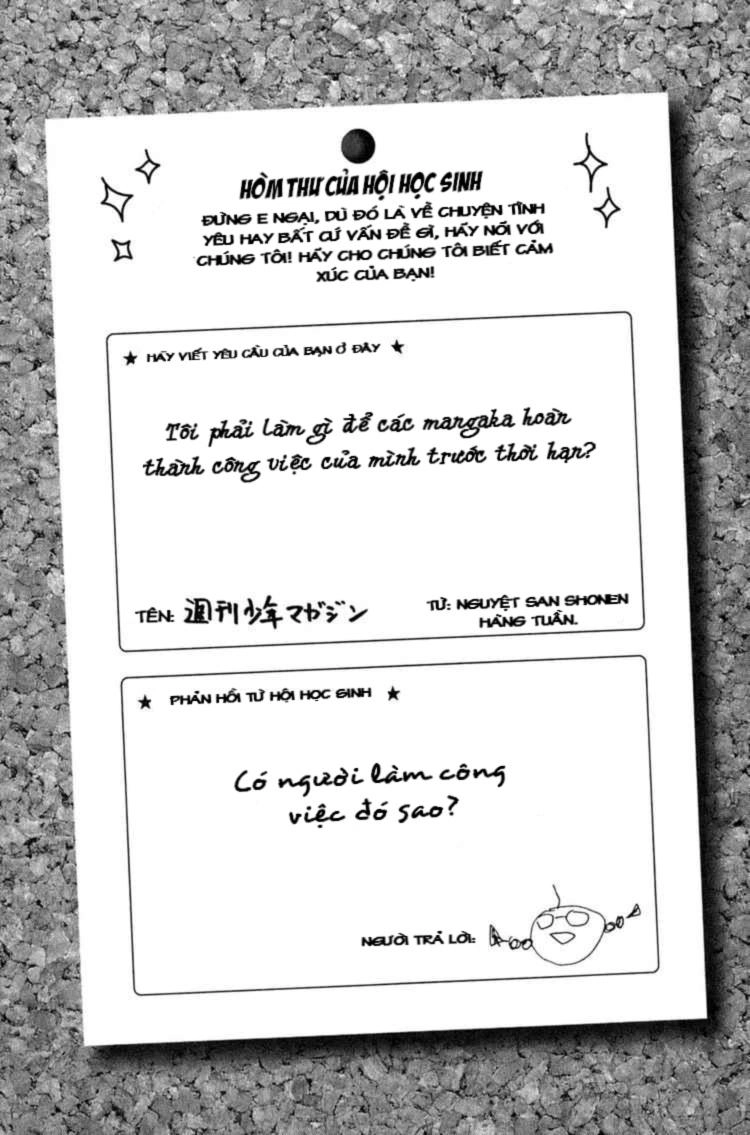 HÒM THƯ CỦA HỘI HỌC SINH
ĐỪNG E NGẠI, DÙ ĐÓ LÀ VỀ CHUYỆN TÌNH
YÊU HAY BẤT CỨ VẤN ĐỀ GÌ, HÃY NÓI VỚI
CHÚNG TÔI! HÃY CHO CHÚNG TÔI BIẾT CẢM
XÚC CỦA BẠN!
★ HÃY VIẾT YÊU CẦU CỦA BẠN Ở ĐÂY ★
Tôi phải làm gì để các mangaka hoàn
thành công việc của mình trước thời hạn?
TÊN: 週刊少年マガジン
TỪ: NGUYỆT SAN SHONEN
HÀNG TUẦN.
★ PHẢN HỒI TỪ HỘI HỌC SINH ★
Có người làm công
việc đó sao?
NGƯỜI TRẢ LỜI: